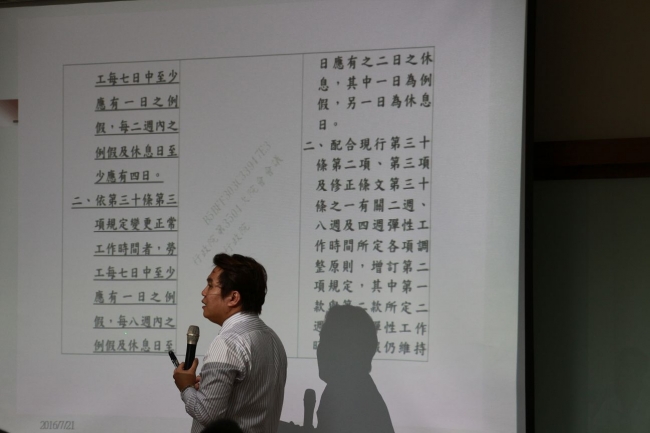 工每七日中至少
應有一日之例
假，每二週內之
例假及休息日至
少應有四日。
二、依第三十條第三
項規定變更正常
工作時間者，勞
工每七日中至少
應有一日之例
假，每八週內之
例假及休息日至
日應有之二日之休
息，其中一日為例
假，另一日為休息
日。
二、配合現行第三十
條第二項、第三項
及修正條文第三十
條之一有關二週、
八週及四週彈性工
作時間所定各項調
整原則，增訂第二
項規定，其中第一
款所定二
彈性工作
仍維持
2016/7/21